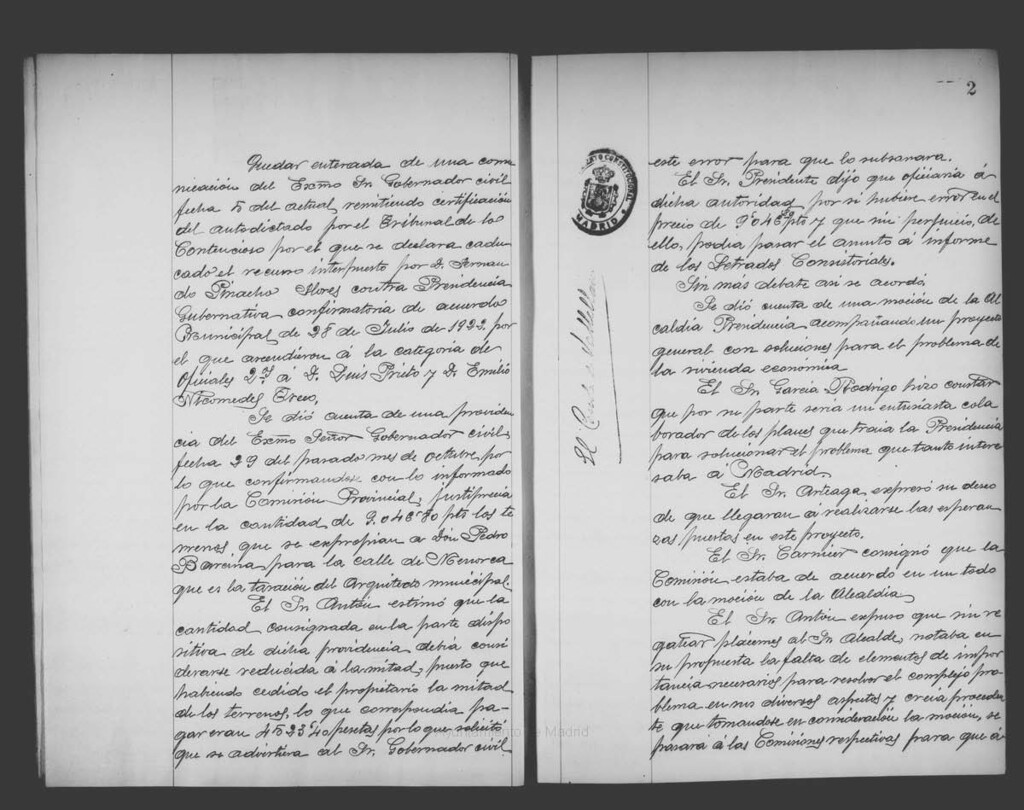 Quedar enterada de una comu
nicación del Exmo Sr. Gobernador civil
fecha 5 del actual, remitiendo certificación
del auto dictado por el Tribunal de lo
Contencioso por el que se declara cadu-
cado el recurso interpuesto por D. Fernan
do Pinacho Flores contra Presidencia
Gubernativa confirmatoria de acuerdo
Municipal de 28 de Julio de 1922 por
el que ascendieron á la categoria de
Oficiales 2os á D. Luis Prieto y D. Emilio
Nicomedes
Se dió cuenta de una providen
cia del Exmo Señor Gobernador civil,
fecha 29 del pasado mes de octubre, por
lo que confirmandose con lo informado
por la Comisión Provincial, justiprecia
en la cantidad de 9.046'80 pts los te
rrenos que se expropian a Don Pedro
Barcina para la calle de Menorca
que es la tasación del Arquitecto municipal.
El Sr Antón estimó que la
cantidad consignada en la parte dispo
sitiva de dicha providencia debia consi
derarse reducida á la mitad, puesto que
habiendo cedido el propietario la mitad
de los terrenos, lo que correspondia pa-
gar eran 4523'40 pesetas por lo que solicitó
que se advirtiera al Sr. Gobernador civil
2
este error para que lo subsanara.
El Sr. Presidente dijo que oficiaria á
dicha autoridad por si hubiere error en el
precio de 9.046'80 pts y que sin perjuicio, de
ello, podia pasar el asunto á informe
de los Letrados Consistoriales.
Sin más debate asi se acordó.
Se dió cuenta de una moción de la Al
caldia Presidencia acompañando un proyecto
general con soluciones para el problema de
la vivienda económica
El Sr Garcia Rodrigo hizo constar
que por su parte seria un entusiasta cola
borador de los planes que traia la Presidencia
para solucionar el problema que tanto intere
saba á Madrid.
El Sr. Arteaga expresó su deseo
de que llegaran a realizarse las esperan
zas puestas en este proyecto.
El Sr. Carnicer consignó que la
Comisión estaba de acuerdo en un todo
con la moción de la Alcaldia
El Sr. Antón expuso que sin re
gatear plácemes al Sr Alcalde, notaba en
su propuesta la falta de elementos de impor
tancia necesarios para resolver el complejo pro
blema en sus diversos aspectos y creia proceden
te que tomandose en consideración la moción, se
pasara á las Comisiones respectivas para que á
El Conde de Vallellano
MADRID
Ayuntamiento de Madrid